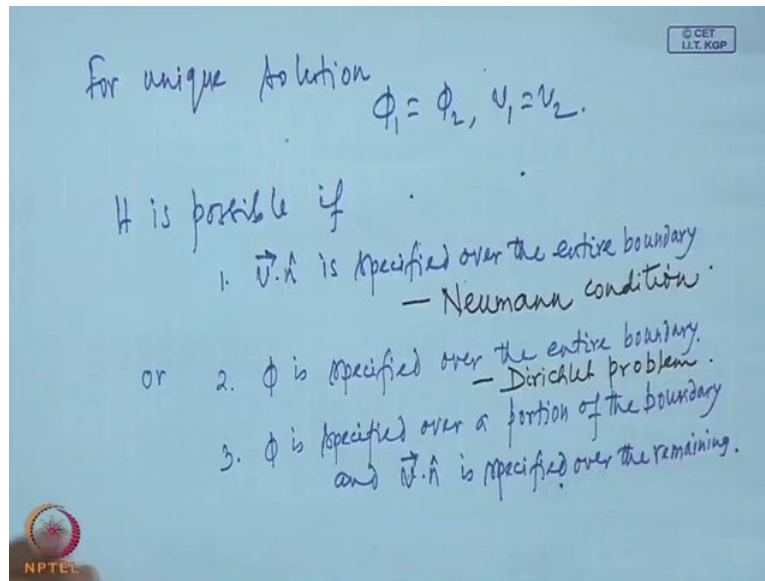 © CET
I.I.T. KGP
For unique solution
ϕ₁ = ϕ₂, v₁ = v₂.
It is possible if
1. v⃗.n̂ is specified over the entire boundary
— Neumann condition.
or 2. ϕ is specified over the entire boundary.
— Dirichlet problem.
3. ϕ is specified over a portion of the boundary
and v⃗.n̂ is specified over the remaining.
NPTEL